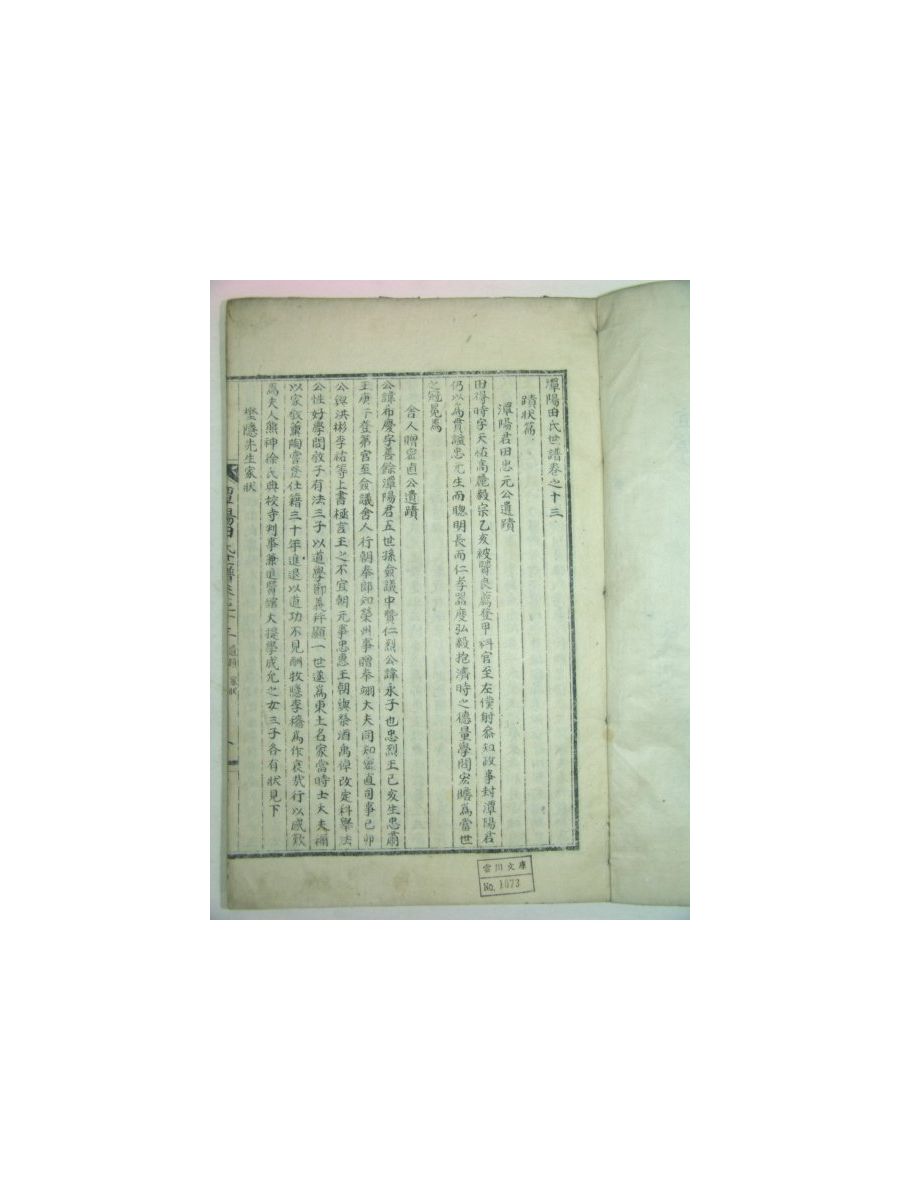 潭陽田氏世譜卷之十三
蹟狀篇
潭陽君田忠元公遺蹟
田得時字天佑高麗毅宗乙亥被賢良薦登甲科官至左僕射叅知政事封潭陽君
仍以爲貫諡忠元生而聰明長而仁孝器度弘毅抱濟時之德量學問宏贍爲當世
之冠冕焉
舍人贈密直公遺蹟
公諱希慶字善餘潭陽君五世孫僉議中贊仁烈公諱永子也忠烈王己亥生忠肅
王庚午登第官至僉議舍人行朝奉郎知榮州事贈奉翊大夫同知密直司事己卯
公與洪彬李祐等上書極言王之不宜朝元事忠惠王朝與祭酒禹倬改定科擧法
公性好學問敎子有法三子以道學節義幷顯一世遂爲東土名家當時士大夫稱
以家敎薰陶嘗登仕籍三十年進退以道功不見酬牧隱李穡爲作哀哉行以感歎
焉夫人熊神徐氏典校寺判事兼進賢館大提學成允之女三子各有狀見下
壄隱先生家狀
潭陽田氏世譜卷之十三
遺蹟 家狀
一
雲川文庫
No. 1073